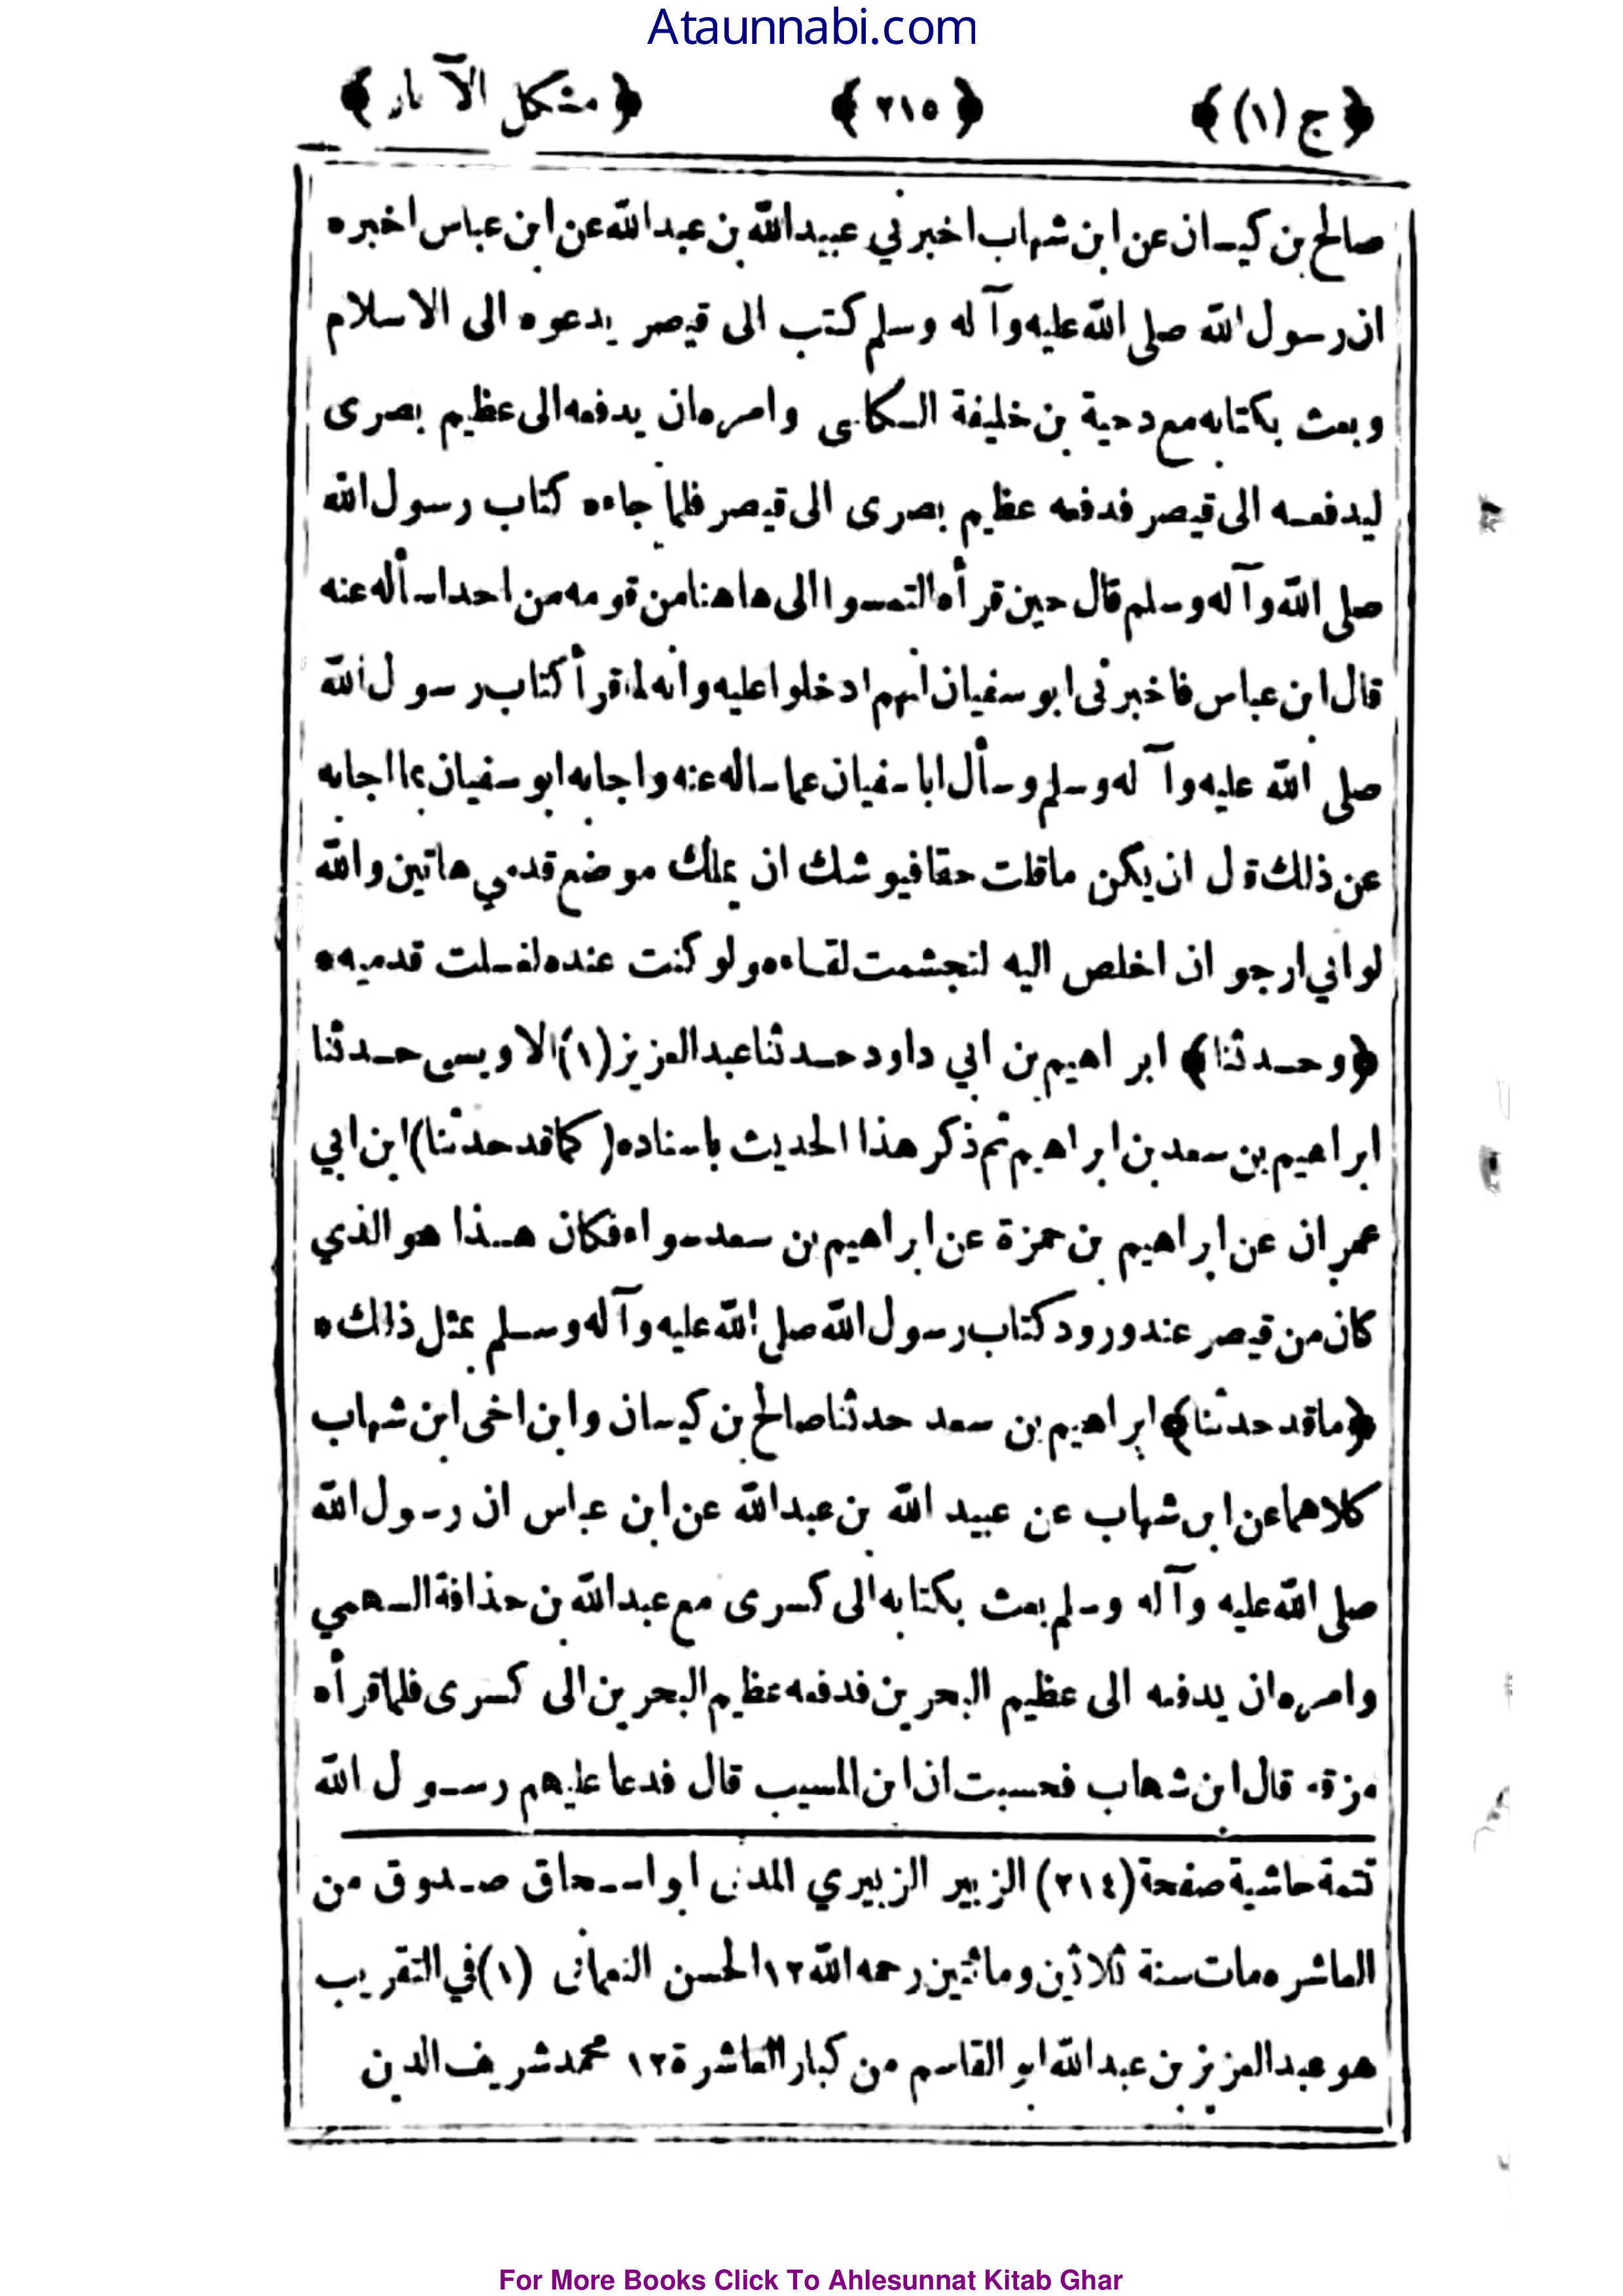 Ataunnabi.com
﴿ ج (١) ﴾ ﴿ ٢١٥ ﴾ ﴿ مشكل الآثار ﴾
صالح بن كيسان عن ابن شهاب اخبرني عبيدالله بن عبدالله عن ابن عباس اخبره
ان رسول الله صلى الله عليه وآله وسلم كتب الى قيصر يدعوه الى الاسلام
وبعث بكتابه مع دحية بن خليفة الكلبى وامره ان يدفعه الى عظيم بصرى
ليدفعه الى قيصر فدفعه عظيم بصرى الى قيصر فلما جاءه كتاب رسول الله
صلى الله وآله وسلم قال حين قرأه التمسوا الى هاهنا من قومه من احد اسأله عنه
قال ابن عباس فاخبرنى ابو سفيان انهم ادخلوا عليه وانه لما قرأ كتاب رسول الله
صلى الله عليه وآله وسلم وسأل ابا سفيان عما سأله عنه واجابه ابو سفيان بما اجابه
عن ذلك قال ان يكن ما قلت حقا فيوشك ان يملك موضع قدمي هاتين والله
لو اني ارجو ان اخلص اليه لتجشمت لقاءه ولو كنت عنده لغسلت قدميه ٭
﴿ وحدثنا ﴾ ابراهيم بن ابي داود حدثنا عبدالعزيز (١) الاويسى حدثنا
ابراهيم بن سعد بن ابراهيم ثم ذكر هذا الحديث باسناده (كما قد حدثنا) ابن ابي
عمران عن ابراهيم بن حمزة عن ابراهيم بن سعد سواء فكان هذا هو الذي
كان من قيصر عند ورود كتاب رسول الله صلى الله عليه وآله وسلم بمثل ذلك ٭
﴿ ما قد حدثنا ﴾ ابراهيم بن سعد حدثنا صالح بن كيسان وابن اخى ابن شهاب
كلاهما عن ابن شهاب عن عبيد الله بن عبدالله عن ابن عباس ان رسول الله
صلى الله عليه وآله وسلم بعث بكتابه الى كسرى مع عبدالله بن حذافة السهمي
وامره ان يدفعه الى عظيم البحرين فدفعه عظيم البحرين الى كسرى فلما قرأه
مزقه قال ابن شهاب فحسبت ان ابن المسيب قال فدعا عليهم رسول الله
تتمة حاشية صفحة (٢١٤) الزبير الزبيري المدنى ابو اسحاق صدوق من
العاشره مات سنة ثلاثين ومائتين رحمه الله ١٢ الحسن النعمانى (١) في التقريب
هو عبدالعزيز بن عبدالله ابو القاسم من كبار العاشرة ١٢ محمد شريف الدين
For More Books Click To Ahlesunnat Kitab Ghar